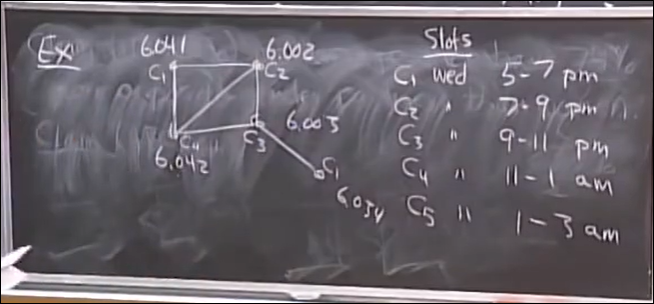 Ex
6.041
6.002
C1
C2
6.003
C4
C3
6.042
C1
6.034
Slots
C1 Wed 5-7 pm
C2 " 7-9 pm
C3 " 9-11 pm
C4 " 11-1 am
C5 " 1-3 am